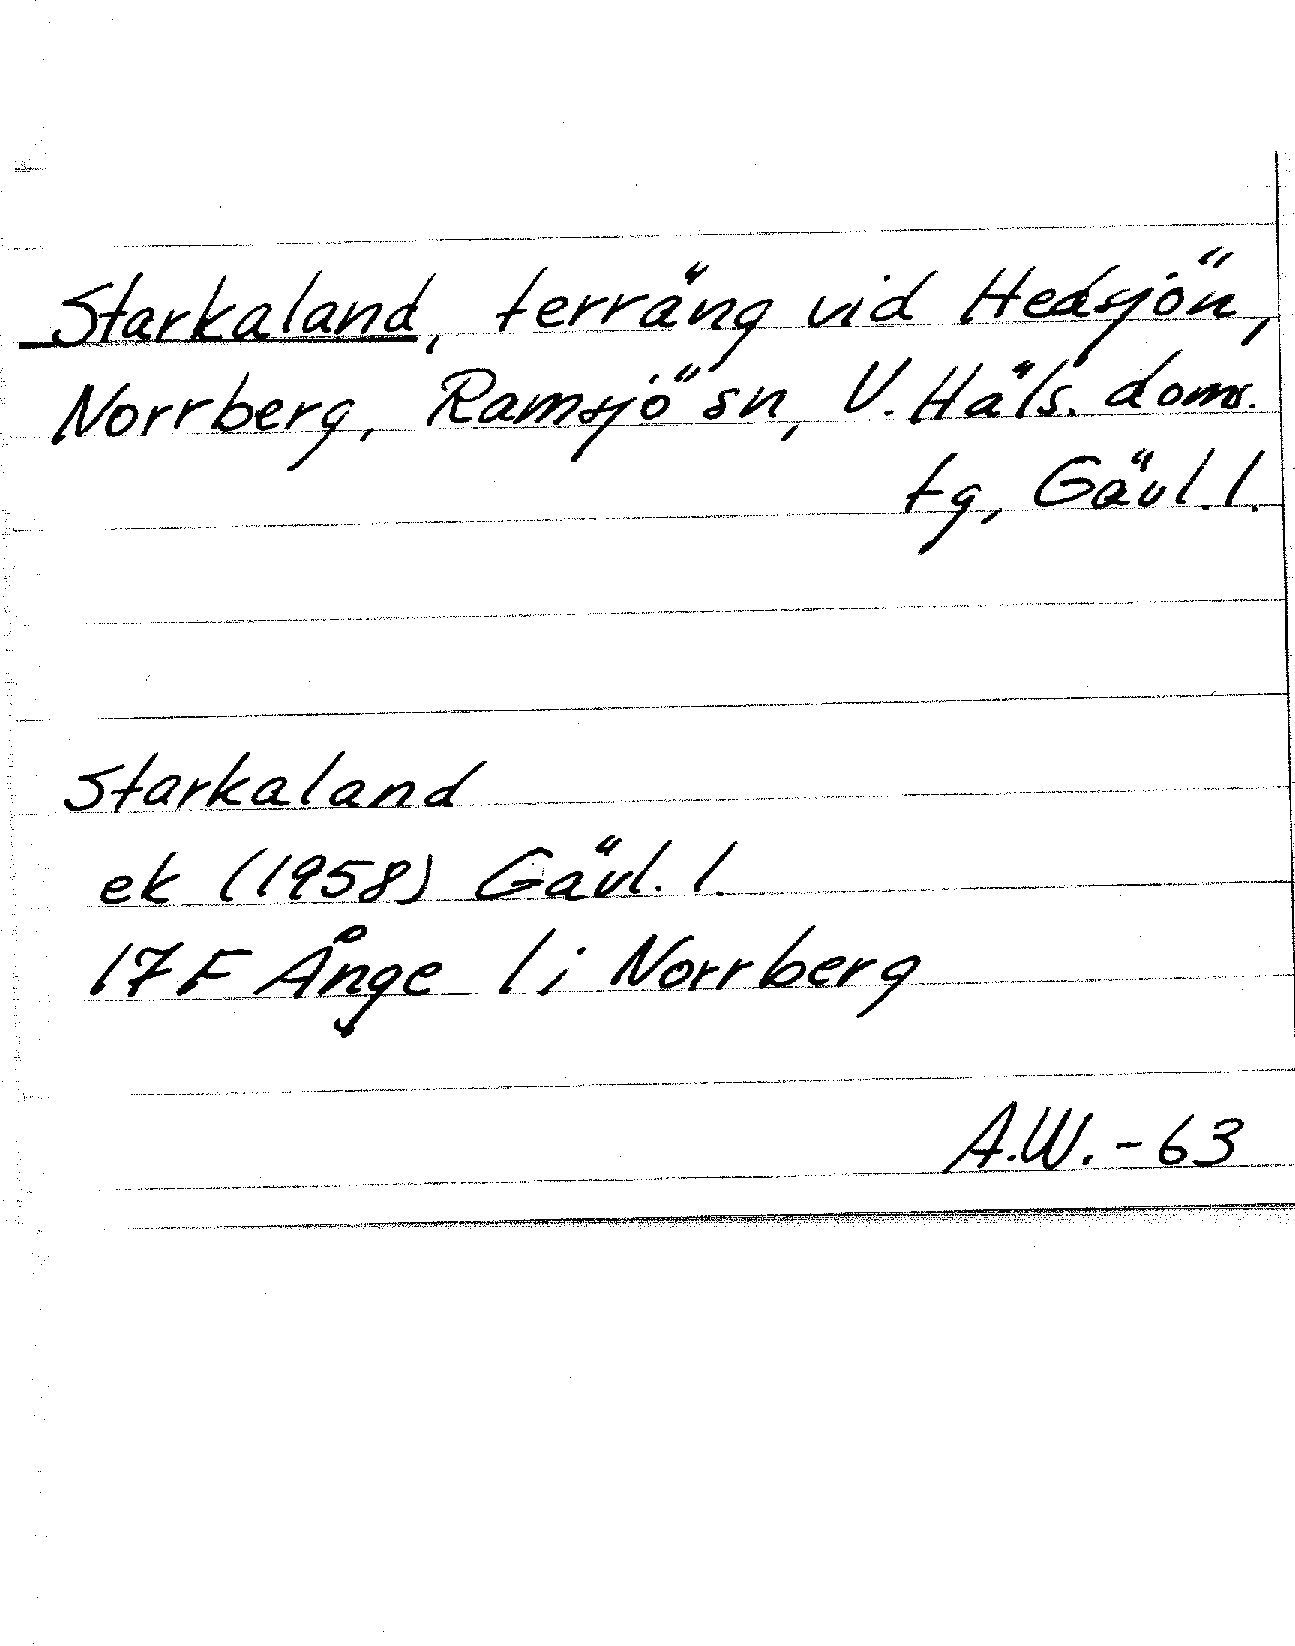 Starkaland, terräng vid Hedsjön,
Norrberg, Ramsjö sn, V. Häls. doms.
tg, Gävl. l.
Starkaland
ek (1958) Gävl. l.
17 F Ånge 1 i Norrberg
A.W. - 63